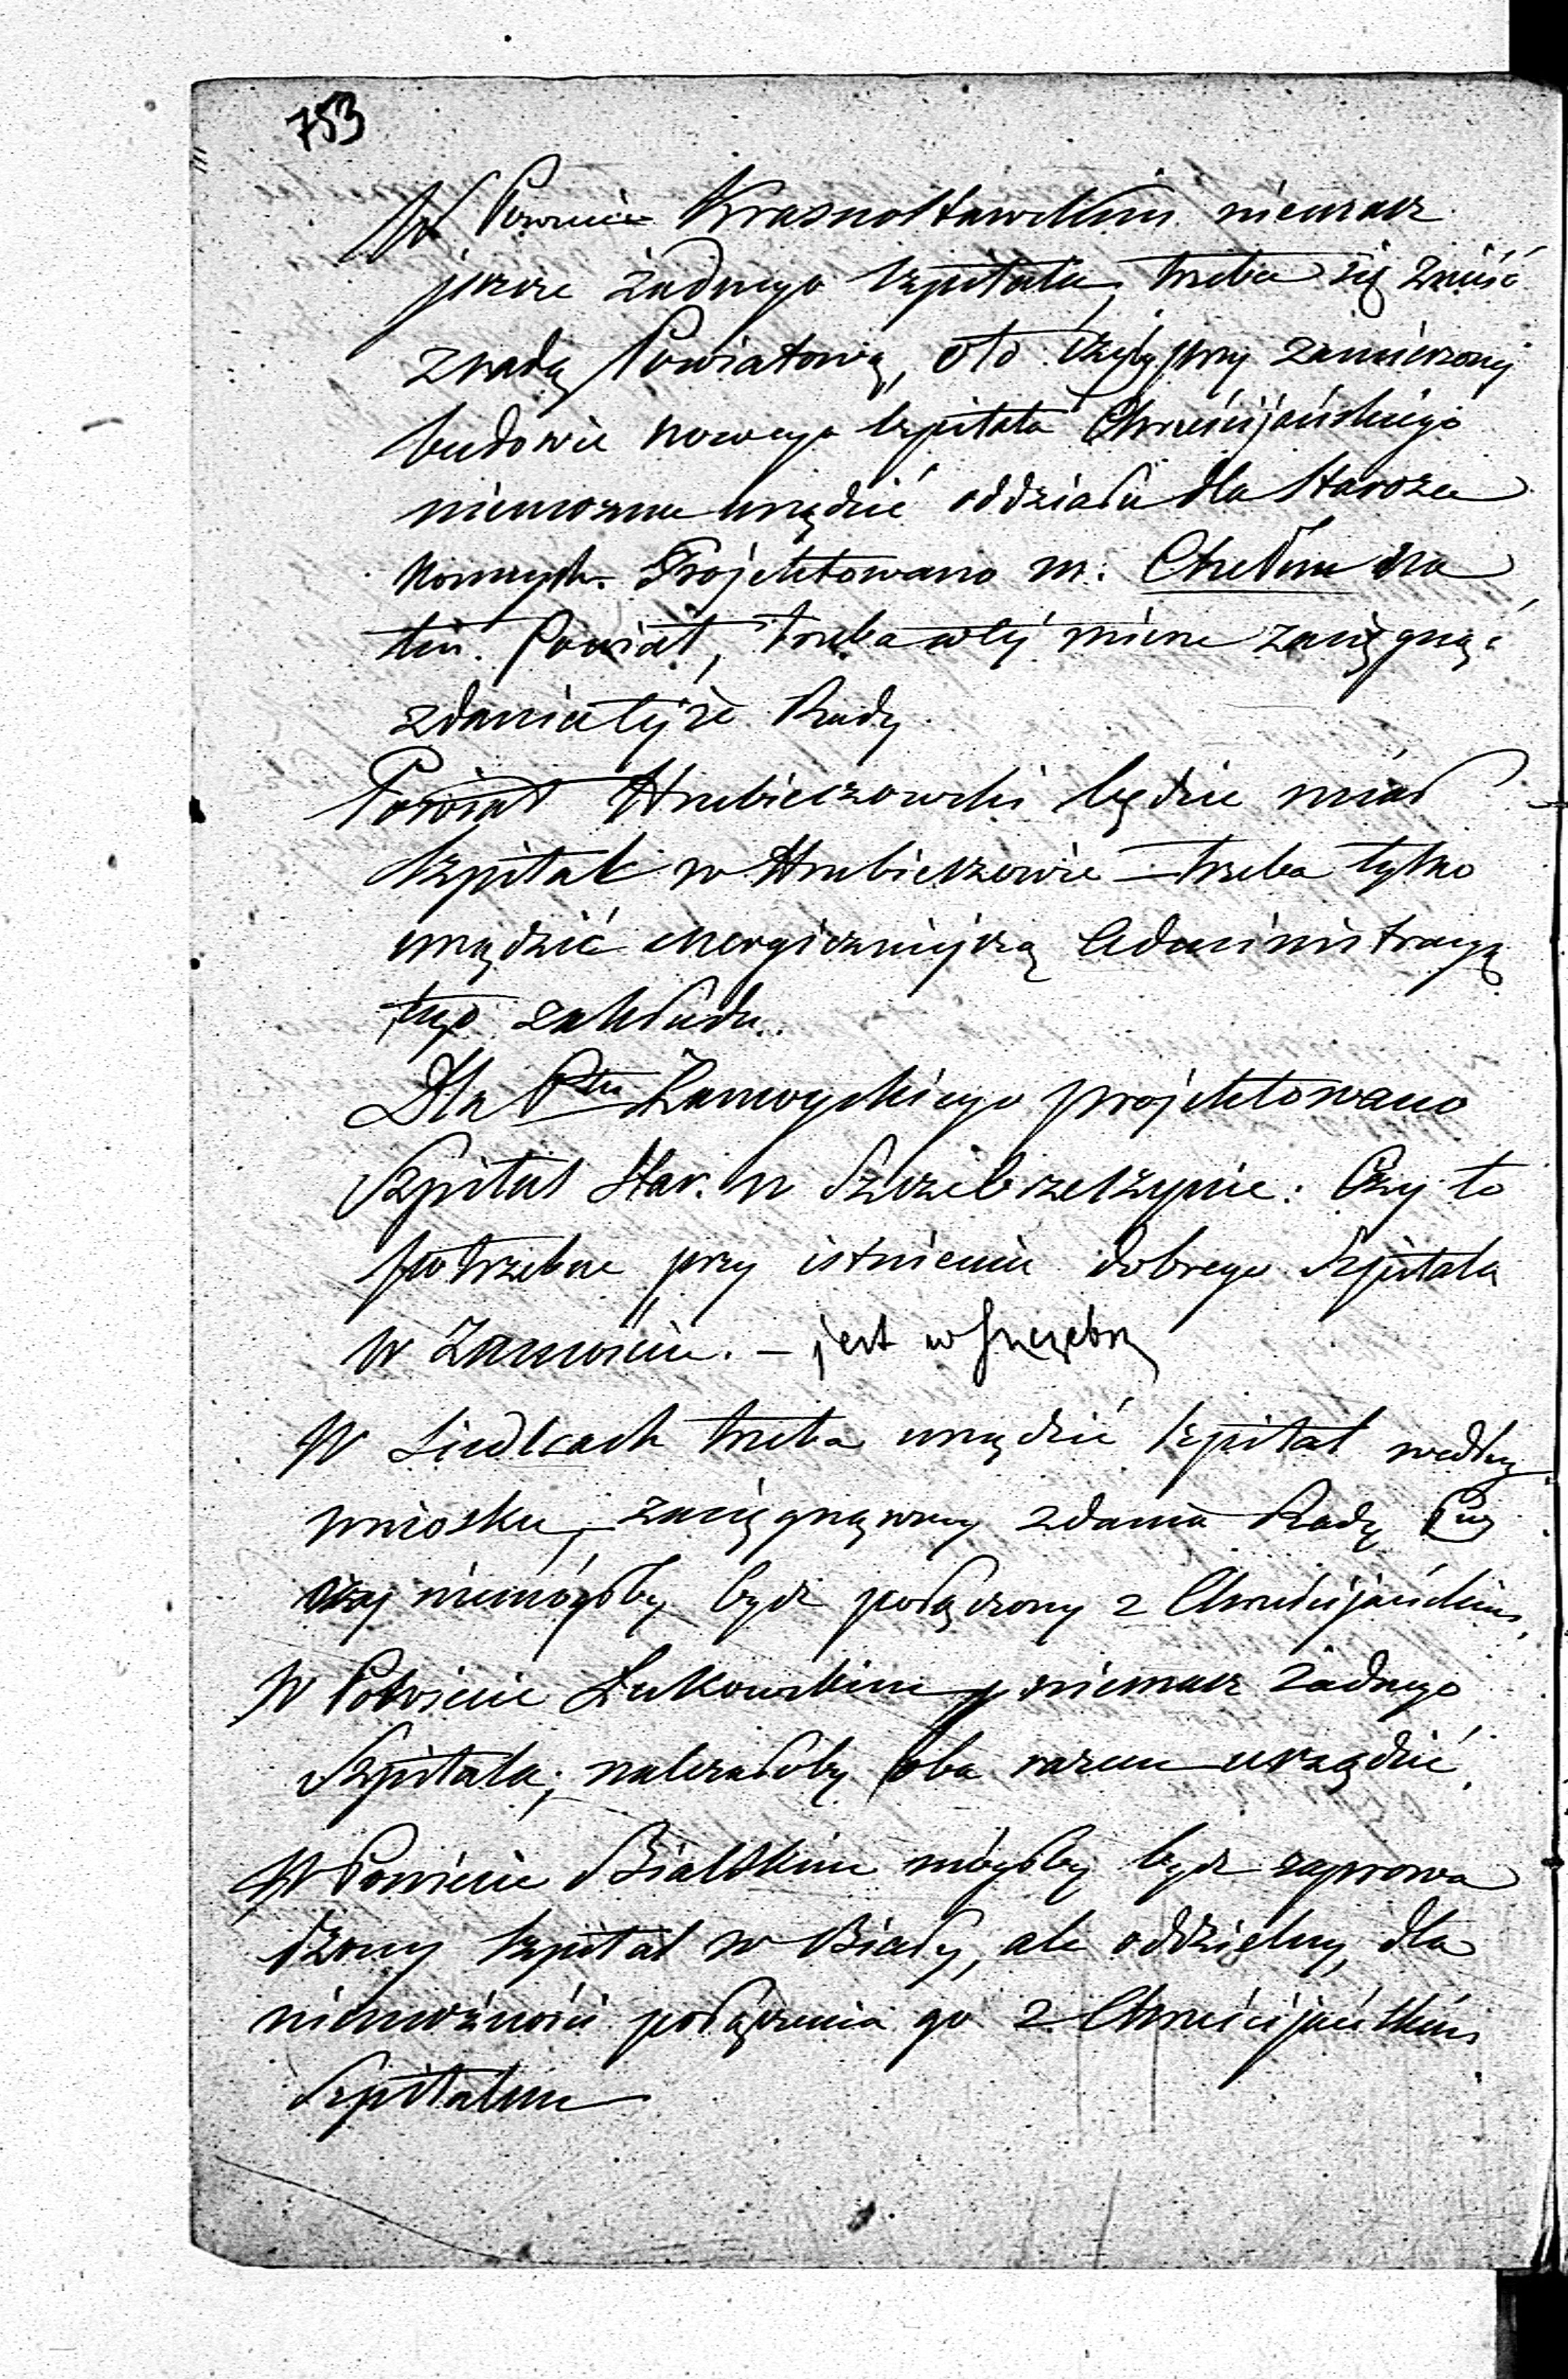 753
W Powiecie Krasnostawskim niemasz
jeszcze żadnego szpitala, trzeba się znieść
z radą Powiatową, oto czyby przy zamierzonej
budowie nowego szpitala Chrześcijańskiego
niemożna urządzić oddziału dla Staroza
konnych. Projektowano m. Chełm na
ten Powiat, trzeba w tej mierze zaciągnąć
zdania tejże Rady.
Powiat Hrubieszowski będzie miał
szpital w Hrubieszowie – trzeba tylko
urządzić energiczniejszą Administracyą
tego zakładu.
Dla Ptu Zamoyskiego projektowano
Szpital Star. w Szczebrzeszynie: Czy to
potrzebne przy istnieniu dobrego Szpitala
w Zamościu. – jest w Szczebrz
W Siedlcach trzeba urządzić szpital według
wniosku, zaciągnąwszy zdania Rady
czy niemógłby bydz połączony z Chrześcijańskim.
W Powiecie Łukowskim niemasz żadnego
Szpitala; należałoby oba razem urządzić.
W Powiecie Bialskim mógłby bydz zaprowa
dzony szpital w Biały, ale oddzielny, dla
niemożności połączenia go z Chrześcijańskim
Szpitalem